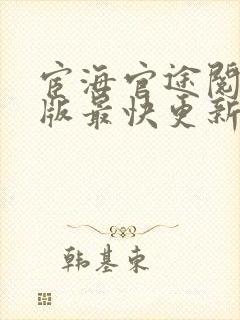 宦海官途阅
版最快更新
韩基东